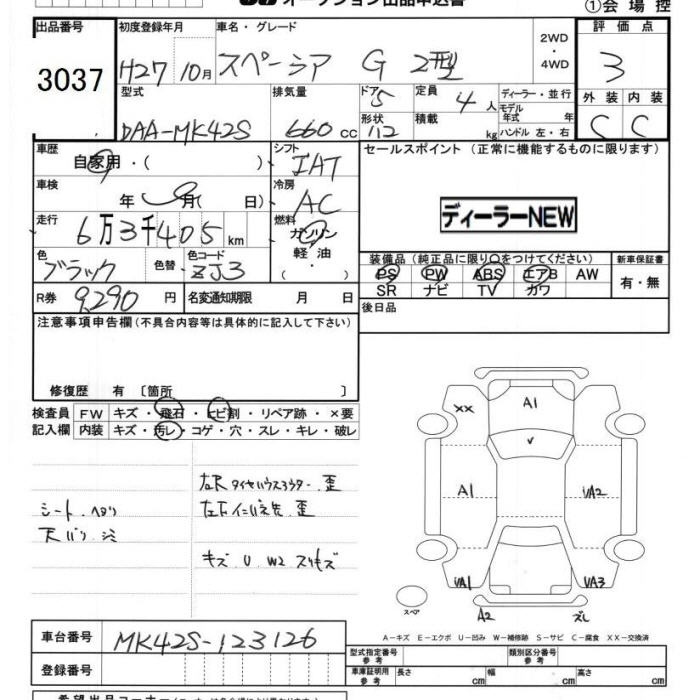 オークション出品申込書
①会場控
出品番号 初度登録年月 車名・グレード 2WD・4WD 評価点
3037 H27 10月 スペーシア G 2型 3
型式 排気量 ドア 5 定員 4人 ディーラー・並行 外装 内装
モデル年式 年
DAA-MK42S 660cc 形状 112 積載 kg ハンドル 左・右 C C
車歴 自家用・( ) シフト IAT セールスポイント (正常に機能するものに限ります)
車検 年 月( 日) 冷房 AC
ディーラーNEW
走行 6万3千405km 燃料 ガソリン
軽油
・( )
色 ブラック 色替 色コード ZJ3
装備品 (純正品に限り○をつけてください) 新車保証書
PS PW ABS エアB AW 有・無
SR ナビ TV カワ
R券 9,290円 名変通知期限 月 日
後日品
注意事項申告欄 (不具合内容等は具体的に記入して下さい)
修復歴 有 〔箇所 〕
検査員 FW キズ・飛石・ヒビ割・リペア跡・×要
記入欄 内装 キズ・汚レ・コゲ・穴・スレ・キレ・破レ
シート ヘタリ
天バリ シミ
左R タイヤハウスアウター 歪
キズ U W2 スリキズ
XX A1
√
A1 UA2
UA1 UA3
スペア A2 ズレ
A−キズ E−エクボ U−凹み W−補修跡 S−サビ C−腐食 XX−交換済
車台番号 MK42S-123126
型式指定番号 参考 類別区分番号 参考
登録番号
車庫証明用 参考 長さ cm 幅 cm 高さ cm
希望出品コーナー